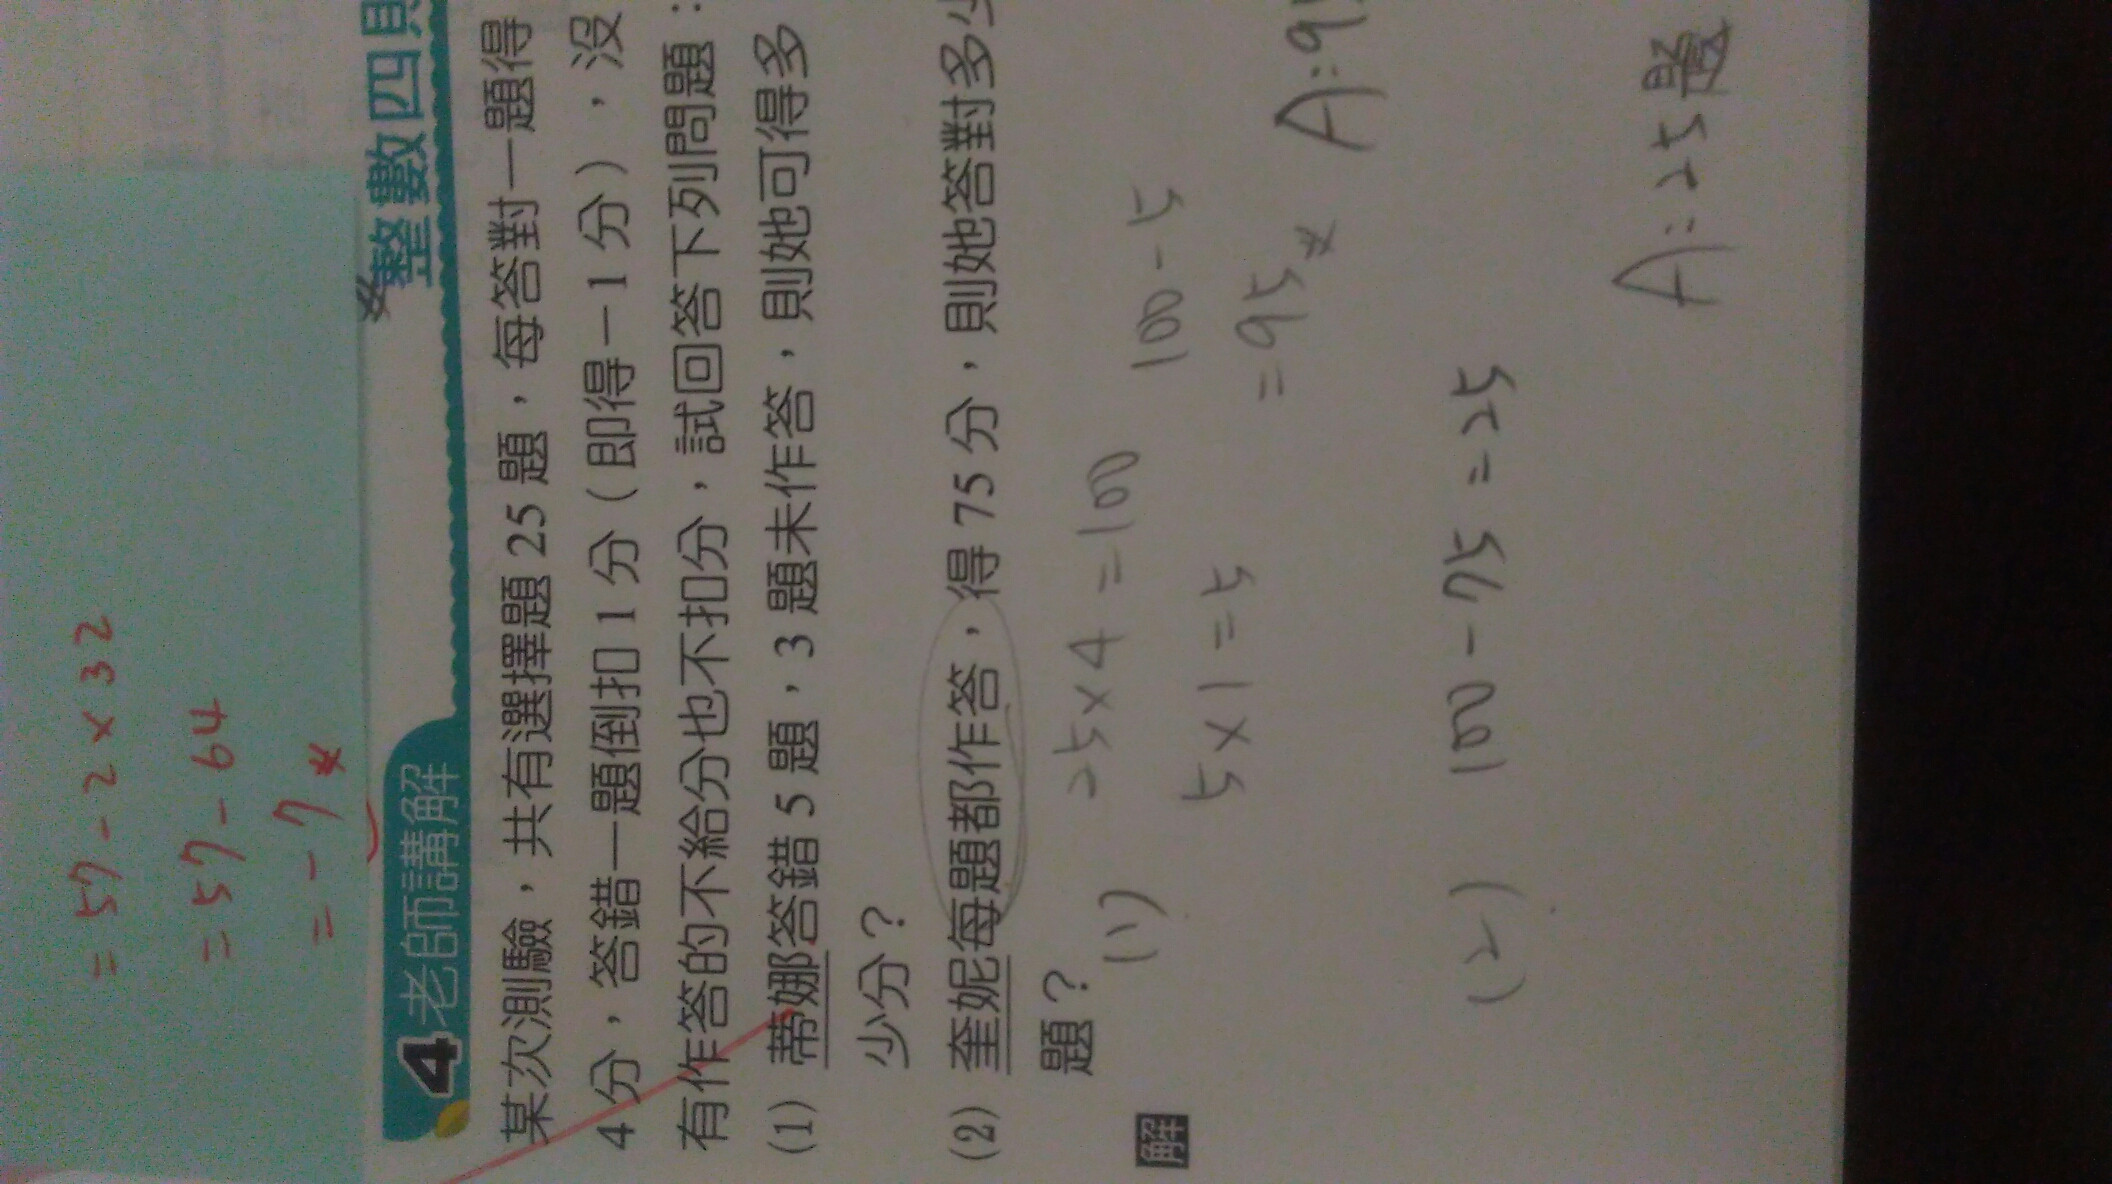 = 57 - 2 × 32
= 57 - 64
= - 7
4 老師講解
整數四則
某次測驗，共有選擇題 25 題，每答對一題得
4 分，答錯一題倒扣 1 分（即得－1 分），沒
有作答的不給分也不扣分，試回答下列問題：
(1) 蒂娜答錯 5 題，3 題未作答，則她可得多
少分？
(2) 奎妮每題都作答，得 75 分，則她答對多少
題？
解
(1) 25 × 4 = 100
100 - 5
5 × 1 = 5
= 95
A: 95
(2) 100 - 75 = 25
A: 25 題